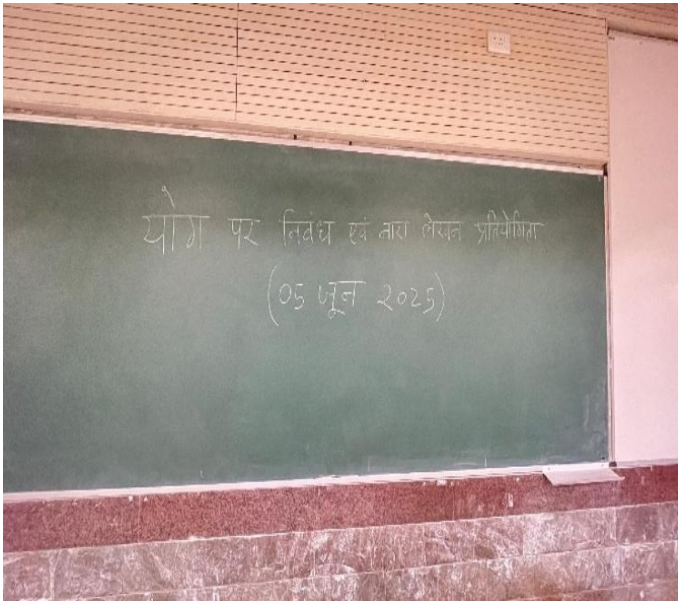 योग पर निबंध एवं नारा लेखन प्रतियोगिता
(05 जून 2025)